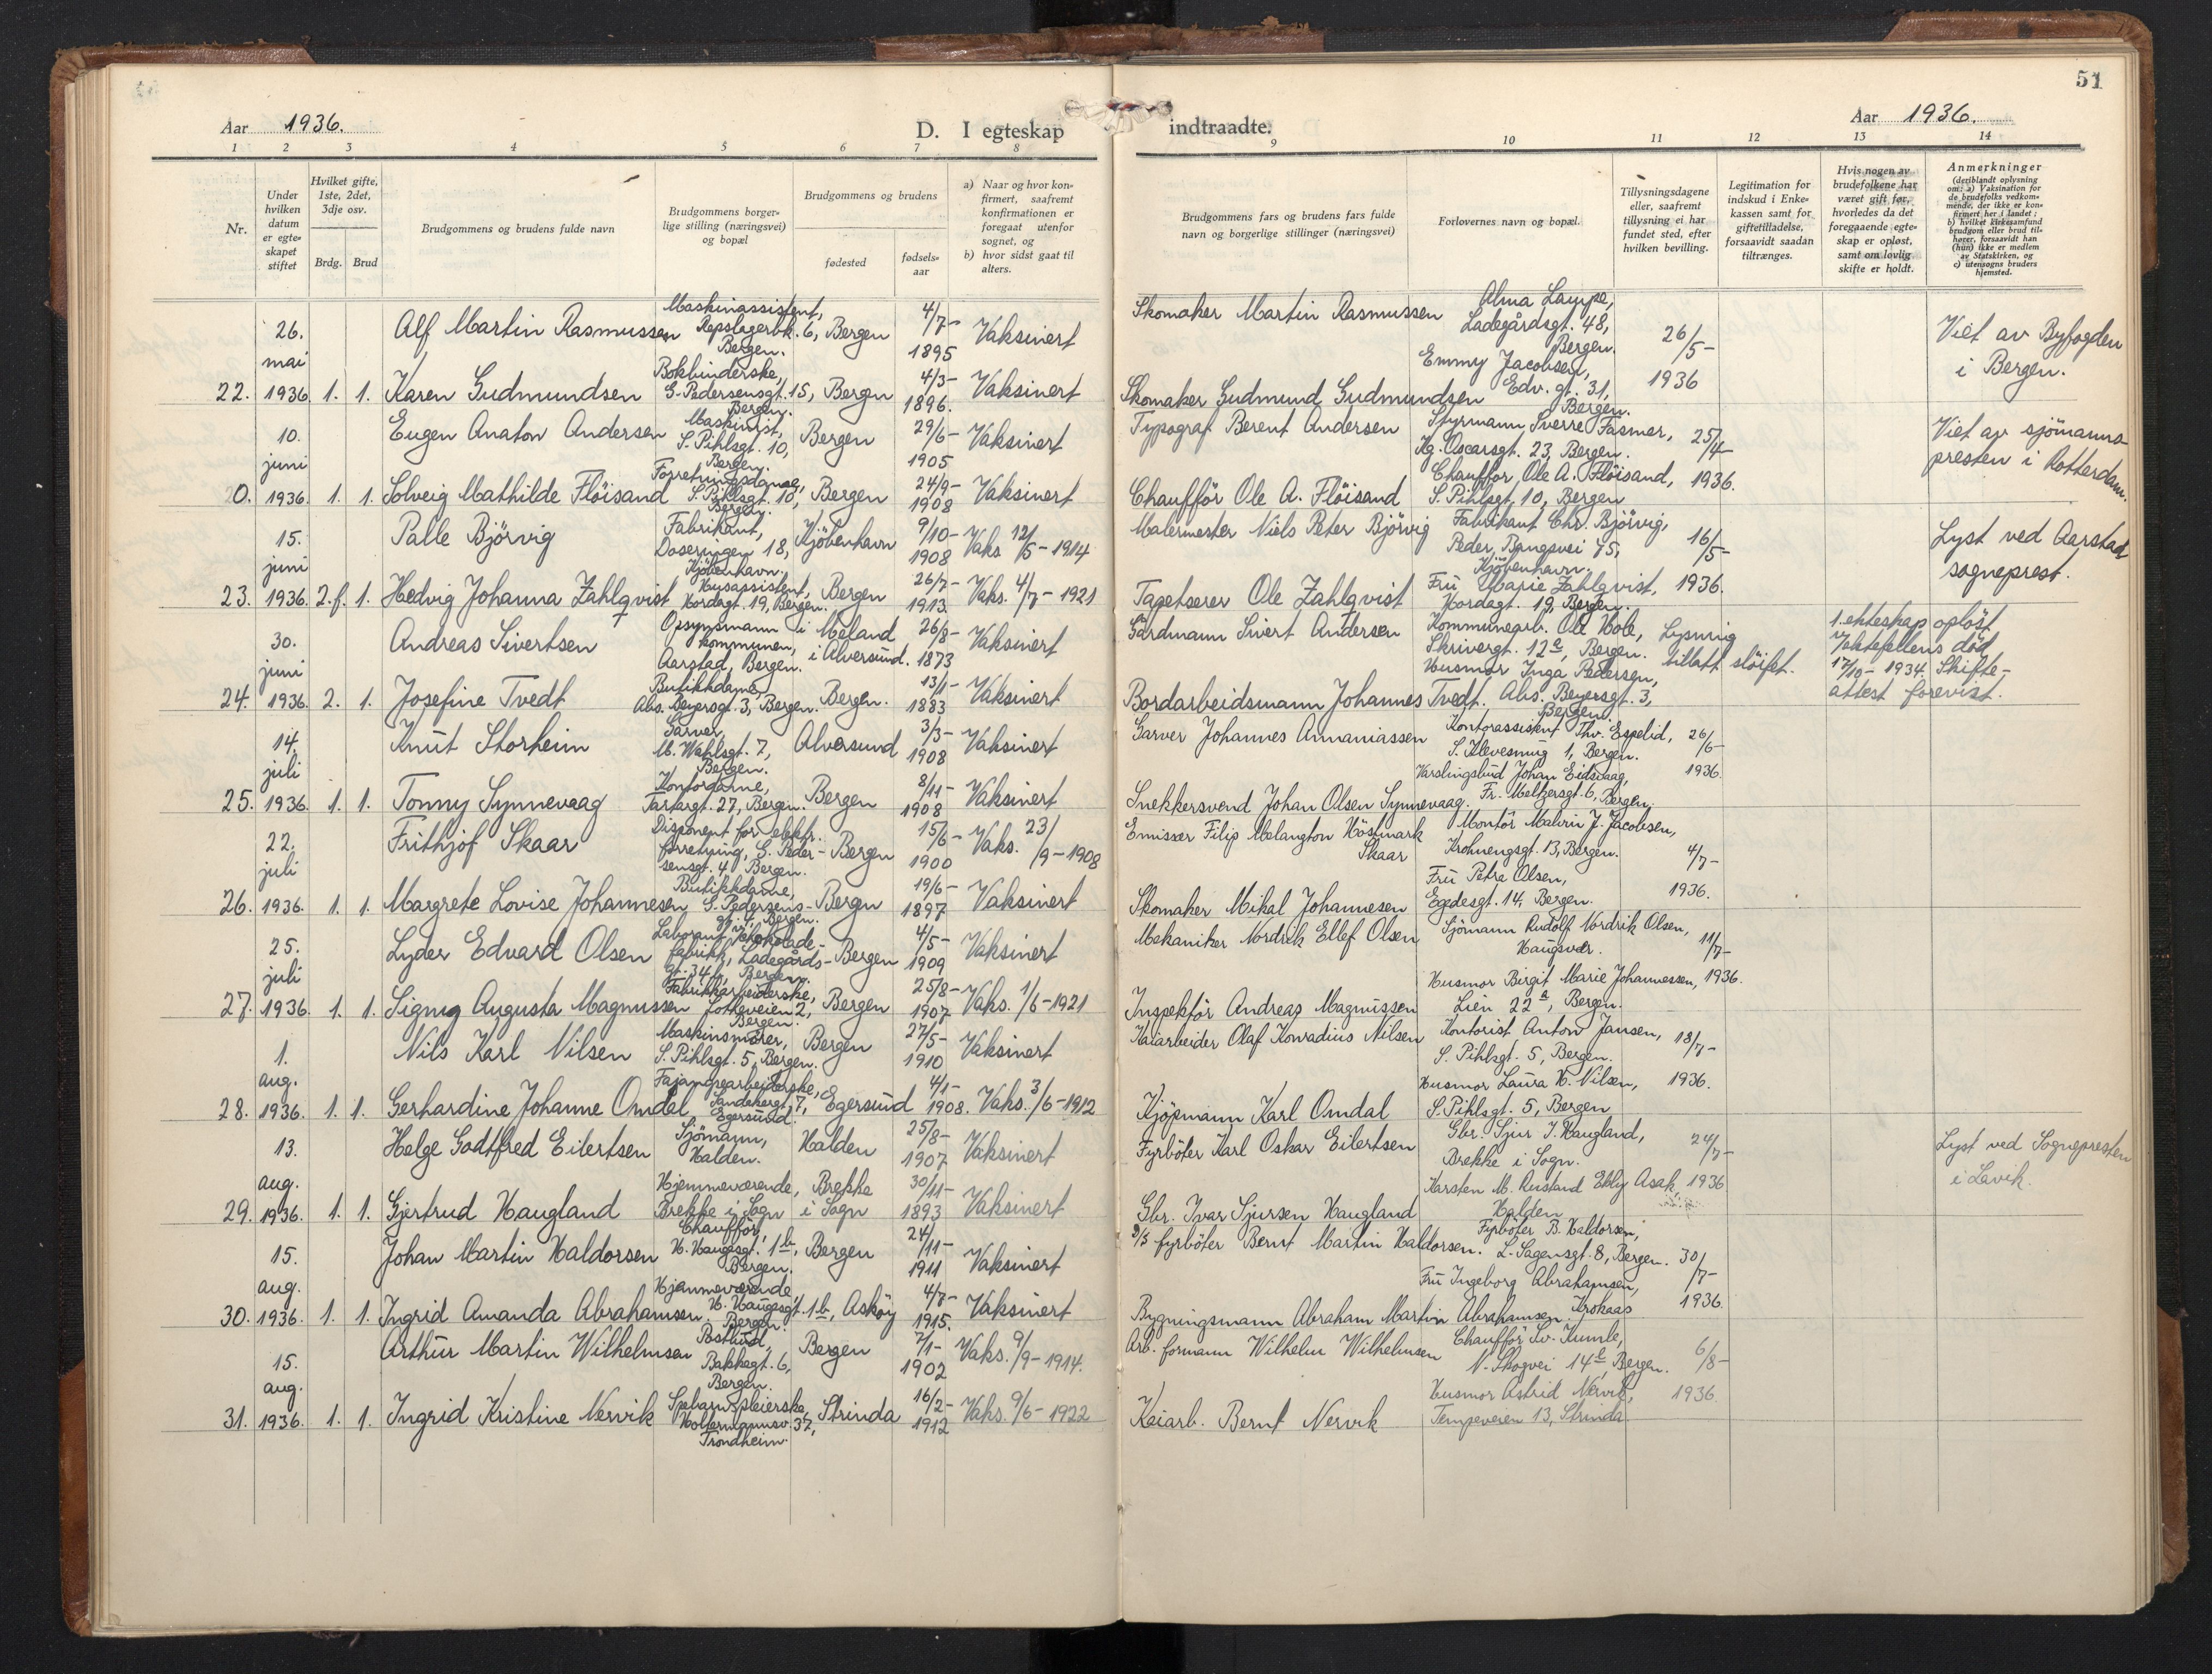 51
Aar 1936.
D. I egteskap
indtraadte.
Aar 1936.
1 2 3 4 5 6 7 8
9 10 11 12 13 14
Nr.
Under hvilken datum er egte-skapet stiftet
Hvilket gifte, 1ste, 2det, 3dje osv.
Brdg. Brud
Brudgommens og brudens fulde navn
Brudgommens borger-lige stilling (næringsvei) og bopæl
Brudgommens og brudens
fødested
fødsels-aar
a) Naar og hvor kon-firmert, saafremt konfirmationen er foregaat utenfor sognet, og
b) hvor sidst gaat til alters.
Brudgommens fars og brudens fars fulde navn og borgerlige stillinger (næringsvei)
Forlovernes navn og bopæl.
Tillysningsdagene eller, saafremt tillysning ei har fundet sted, efter hvilken bevilling.
Legitimation for indskud i Enke-kassen samt for giftetilladelse, forsaavidt saadan tiltrænges.
Hvis nogen av brudefolkene har været gift før, hvorledes da det foregaaende egte-skap er opløst, samt om lovlig skifte er holdt.
Anmerkninger
(deriblandt oplysning om: a) Vaksination for de brudefolks vedkom-mende, der ikke er kon-firmert her i landet; b) hvilket kirkesamfund brudgom eller brud til-hører, forsaavidt han (hun) ikke er medlem av Statskirken, og c) utensogns bruders hjemsted.
22. 26. mai 1936 1. 1.
Alf Martin Rasmussen
Maskinassistent, Repslagerbk. 6, Bergen.
Bergen 4/7-1895 Vaksinert
Skomaker Martin Rasmussen
Alma Lampe, Ladegårdsgt. 48, Bergen.
26/5-1936
Viet av Byfogden i Bergen.
Karen Gudmundsen
Bokbinderske, G. Pedersensgt. 15, Bergen.
Bergen 4/3-1896. Vaksinert
Skomaker Gudmund Gudmundsen
Emmy Jacobsen, Edv. gt. 31, Bergen.
0. 10. juni 1936. 1. 1.
Eugen Anaton Andersen
Maskinist, S. Pihlsgt. 10, Bergen.
Bergen 29/6-1905 Vaksinert
Typograf Berent Andersen
Styrmann Sverre Fasmer, Kg. Oscarsgt. 23, Bergen.
25/4-1936.
Viet av sjömanns-presten i Rotterdam.
Solveig Mathilde Flöisand
Forretningsdame, S. Pihlsgt. 10, Bergen.
Bergen 24/9-1908 Vaksinert
Chaufför Ole A. Flöisand
Chauffor Ole A. Flöisand, S. Pihlsgt. 10, Bergen
23. 15. juni 1936. 2. f. 1.
Palle Björvig
Fabrikant, Doseringen 18, Kjöbenhavn.
Kjöbenhavn 9/10-1908 Vaks 12/5-1914
Malermester Niels Peter Björvig
Fabrikant Chr. Björvig, Peder Bangsvei 45, Kjöbenhavn.
16/5-1936.
Lyst ved Aarstad sogneprest.
Hedvig Johanna Zahlqvist
Husassistent, Hordagt. 19, Bergen.
Bergen 26/7-1913 Vaks. 4/7-1921
Tapetserer Ole Zahlqvist
Fru Marie Zahlqvist, Hordagt. 19, Bergen.
24. 30. juni 1936. 2. 1.
Andreas Sivertsen
Opsynsmann i kommunen, Aarstad, Bergen.
Meland i Alversund. 26/8-1873 Vaksinert
Gårdmann Sivert Andersen
Kommunearb. Ole Hole, Skrivergt. 12a, Bergen.
Lysning tillatt slöifet.
1. ekteskap oplöst v/ektefellens död 17/10-1934. Skifte-attest forevist.
Josefine Tvedt
Butikkdame, Abs. Beyersgt. 3, Bergen.
Bergen. 13/11-1883 Vaksinert
Bordarbeidsmann Johannes Tvedt.
Husmor Inga Pedersen, Abs. Beyersgt. 3, Bergen.
25. 14. juli 1936. 1. 1.
Knut Storheim
Garver, M. Wahlsgt. 7, Bergen.
Alversund 3/3-1908 Vaksinert
Garver Johannes Annaniassen
Kontorassistent Thv. Espelid, S. Klevesmug 1, Bergen.
26/6-1936.
Tonny Synnevaag
Kontordame, Tartargt. 27, Bergen.
Bergen 8/11-1908 Vaksinert
Snekkersvend Johan Olsen Synnevaag.
Varslingsbud Johan Eidsvaag, Fr. Meltzersgt. 6, Bergen.
26. 22. juli 1936. 1. 1.
Frithjof Skaar
Disponent for elektr. forretning, G. Peder-sensgt. 4 Bergen.
Bergen 15/6-1900 Vaks. 23/9-1908
Emissær Filip Melangton Höstmark Skaar
Montör Malvin J. Jacobsen, Krohnengsgt. 13, Bergen.
4/7-1936.
Margrete Lovise Johannesen
Butikkdame, G. Pedersens-gt. 4, Bergen.
Bergen 19/6-1897 Vaksinert
Skomaker Mikal Johannesen
Fru Petra Olsen, Egedesgt. 14, Bergen.
27. 25. juli 1936. 1. 1.
Lyder Edvard Olsen
Laborant v. sjokolade-fabrikk, Ladegårds-gt. 34b, Bergen.
Bergen 4/5-1909 Vaksinert
Mekaniker Nordrik Ellef Olsen
Sjömann Rudolf Nordrik Olsen, Haugsvær.
11/7-1936.
Signy Augusta Magnussen
Fabrikkarbeiderske, Lotheveien 2, Bergen.
Bergen 25/8-1907 Vaks. 1/6-1921
Inspektör Andreas Magnussen
Husmor Birgit Marie Johannessen, Lien 22a, Bergen.
28. 1. aug. 1936. 1. 1.
Nils Karl Nilsen
Maskinsmörer, S. Pihlsgt. 5, Bergen.
Bergen 27/5-1910 Vaksinert
Kaiarbeider Olaf Konradius Nilsen
Kontorist Anton Jansen, S. Pihlsgt. 5, Bergen.
18/7-1936.
Gerhardine Johanne Omdal
Fajansearbeiderske, Sandebergt. 7, Egersund.
Egersund 4/1-1908. Vaks. 3/6-1912
Kjöpmann Karl Omdal
Husmor Laura H. Nilsen, S. Pihlsgt. 5, Bergen
29. 13. aug. 1936. 1. 1.
Helge Godtfred Eilertsen
Sjömann, Halden.
Halden 25/8-1907 Vaksinert
Fyrböter Karl Oskar Eilertsen
Gbr. Sjur I. Haugland, Brekke i Sogn.
24/7-1936
Lyst ved Sognepresten i Lavik.
Gjertrud Haugland
Hjemmeværende, Brekke i Sogn
Brekke i Sogn 30/11-1893 Vaksinert
Gbr. Ivar Sjursen Haugland
Karsten M. Rustand Ebby Asak, Halden
30. 15. aug. 1936. 1. 1.
Johan Martin Haldorsen
Chaufför, H. Haugesgt. 1b, Bergen.
Bergen 24/11-1911 Vaksinert
D/S fyrböter Bernt Martin Haldorsen.
Fyrböter B. Haldorsen, L. Sagensgt. 8, Bergen.
30/7-1936.
Ingrid Amanda Abrahamsen.
Hjemmeværende H. Haugesgt. 1b, Bergen.
Asköy 4/7-1915. Vaksinert
Bygningsmann Abraham Martin Abrahamsen.
Fru Ingeborg Abrahamsen, Krokaas
31. 15. aug. 1936. 1. 1.
Arthur Martin Wilhelmsen
Postbud, Bakkegt. 6, Bergen.
Bergen 7/1-1902 Vaks. 9/9-1914.
Arb. formann Wilhelm Wilhelmsen
Chaufför Sv. Kumle, N. Skogvei 14b, Bergen.
6/8-1936
Ingrid Kristine Nervik
Spebarnspleierske, Holtermannsv. 37, Trondheim.
Strinda 16/2-1912 Vaks. 9/6-1922
Kaiarb. Bernt Nervik
Husmor Astrid Nervik, Tempeveien 13, Strinda